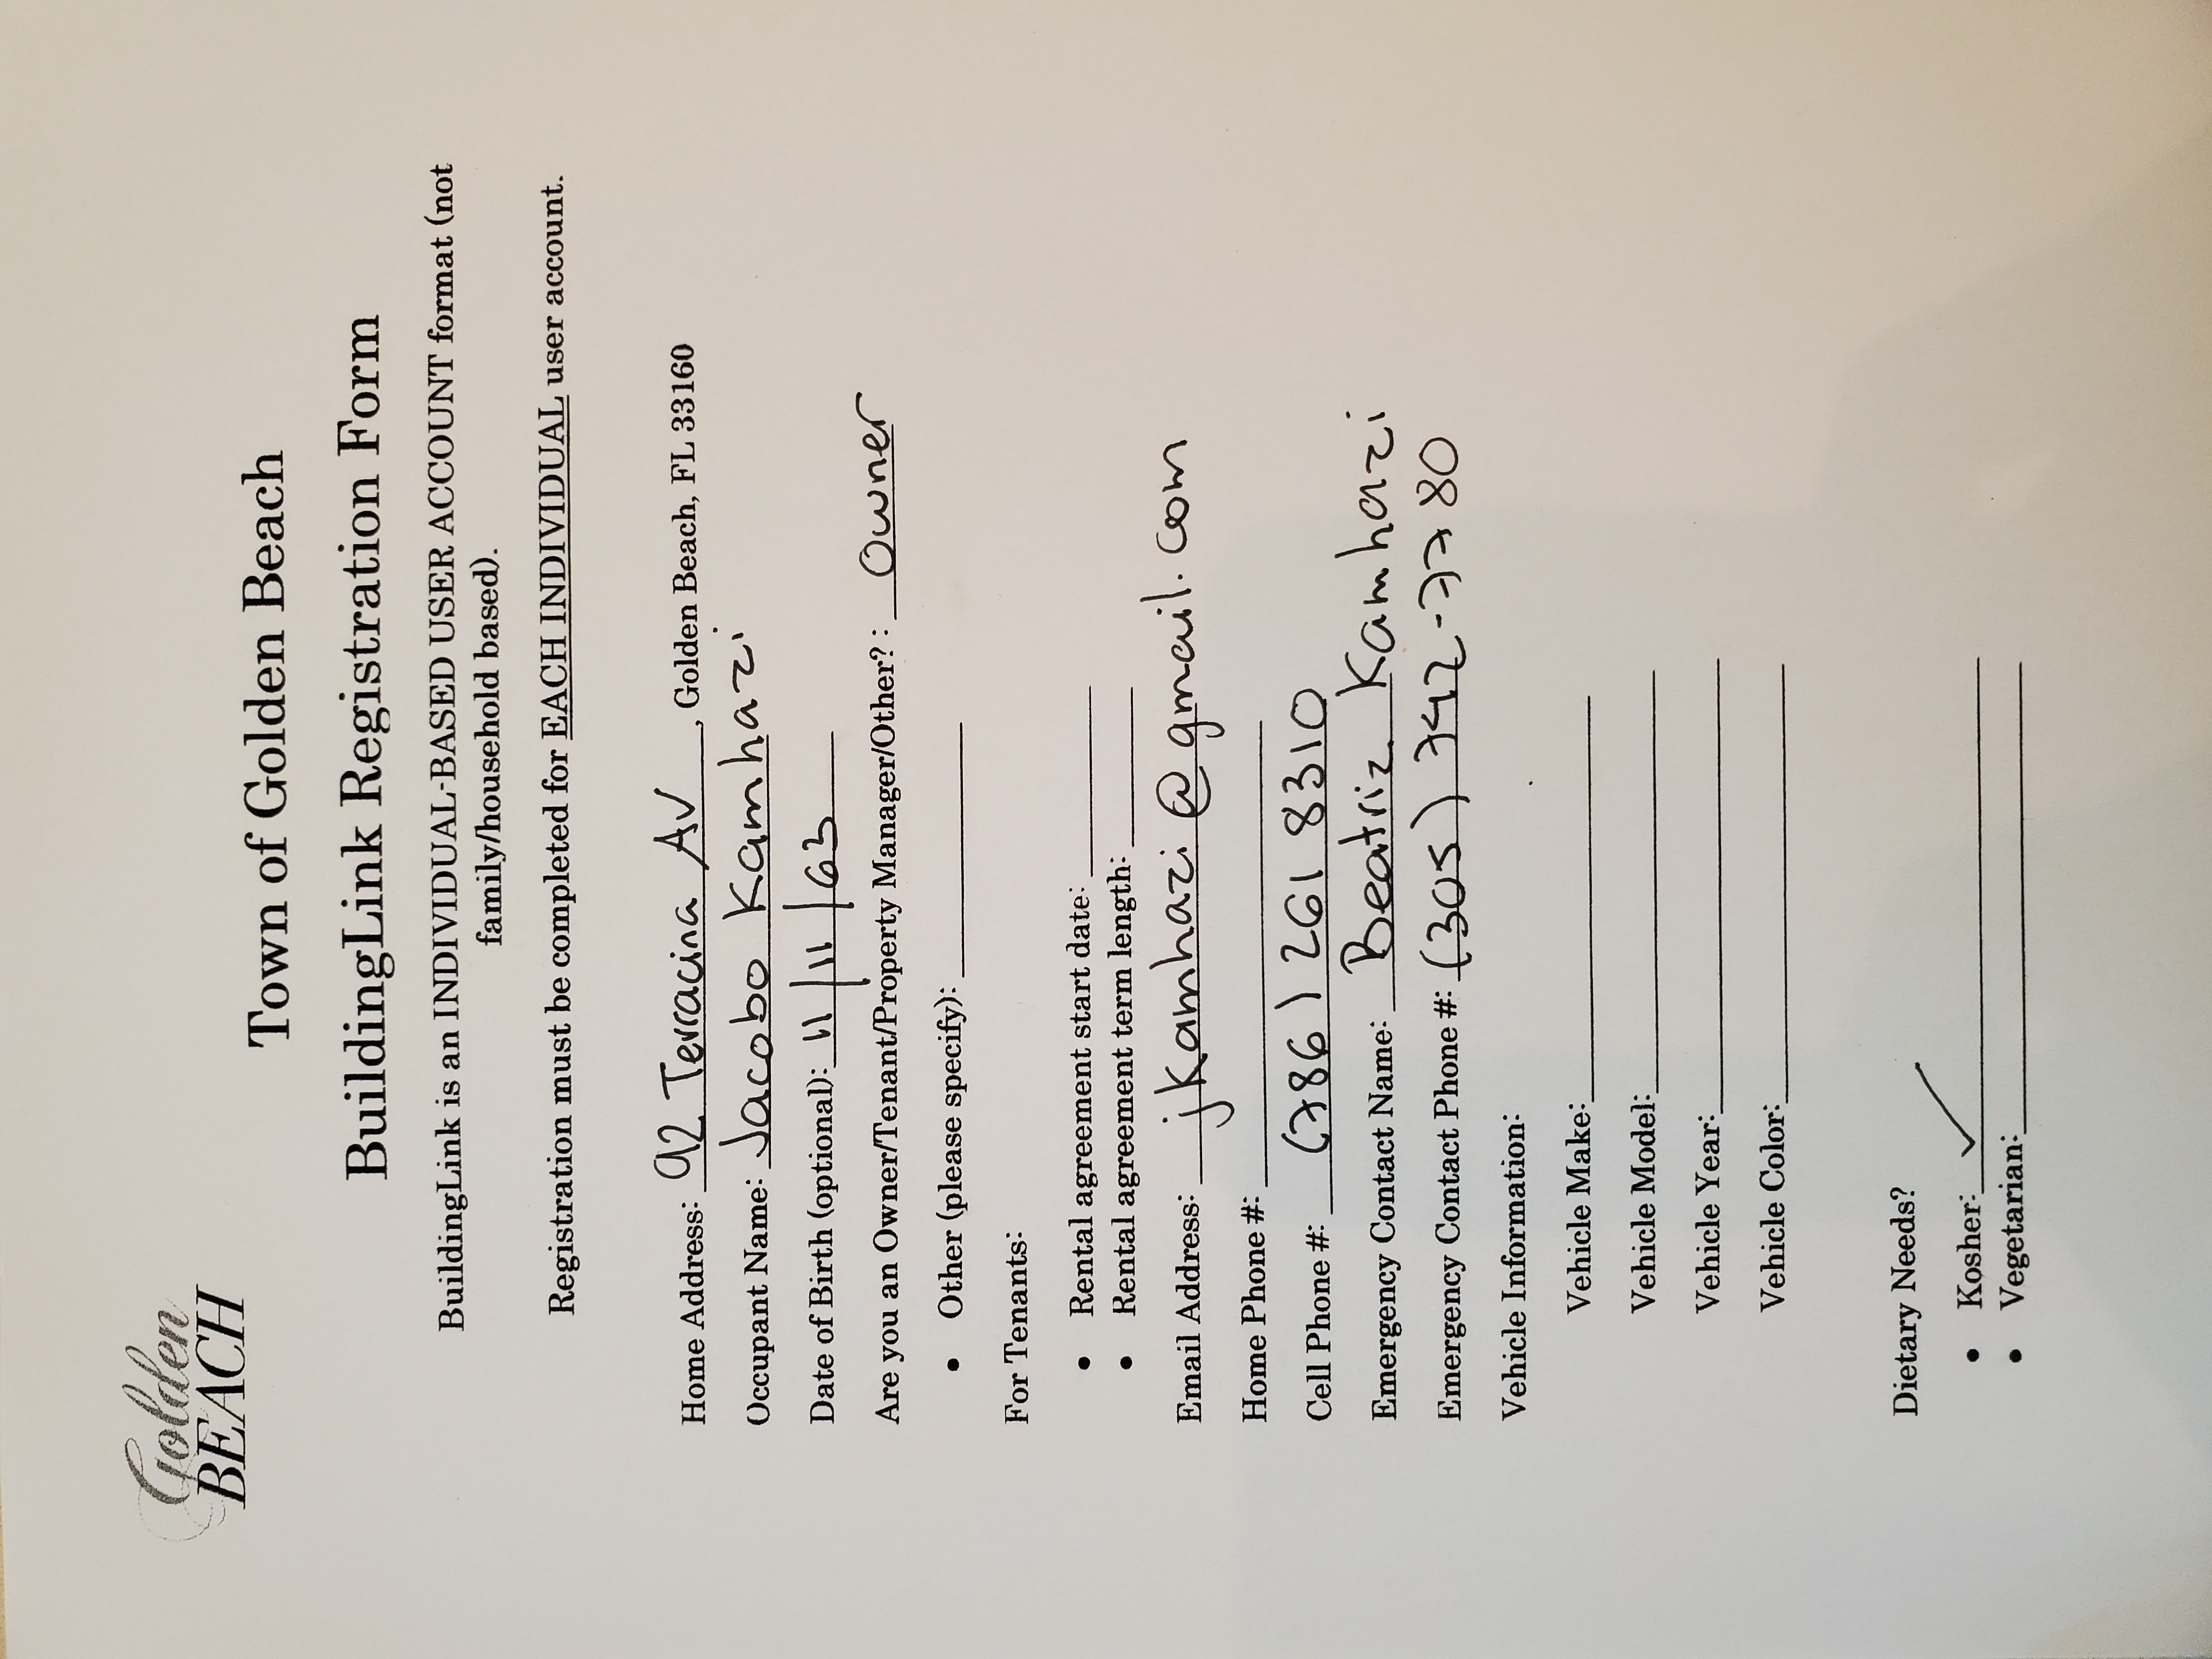 Golden
BEACH
Town of Golden Beach
BuildingLink Registration Form
BuildingLink is an INDIVIDUAL-BASED USER ACCOUNT format (not
family/household based).
Registration must be completed for EACH INDIVIDUAL user account.
Home Address: 92 Terracina AV, Golden Beach, FL 33160
Occupant Name: Jacobo Kamhazi
Date of Birth (optional): 11/11/63
Are you an Owner/Tenant/Property Manager/Other? : Owner
• Other (please specify):
For Tenants:
• Rental agreement start date:
• Rental agreement term length:
Email Address: jkamhazi@gmail.com
Home Phone #:
Cell Phone #: (786) 261 8310
Emergency Contact Name: Beatriz Kamhazi
Emergency Contact Phone #: (305) 742-7780
Vehicle Information:
Vehicle Make:
Vehicle Model:
Vehicle Year:
Vehicle Color:
Dietary Needs?
• Kosher: ✓
• Vegetarian: